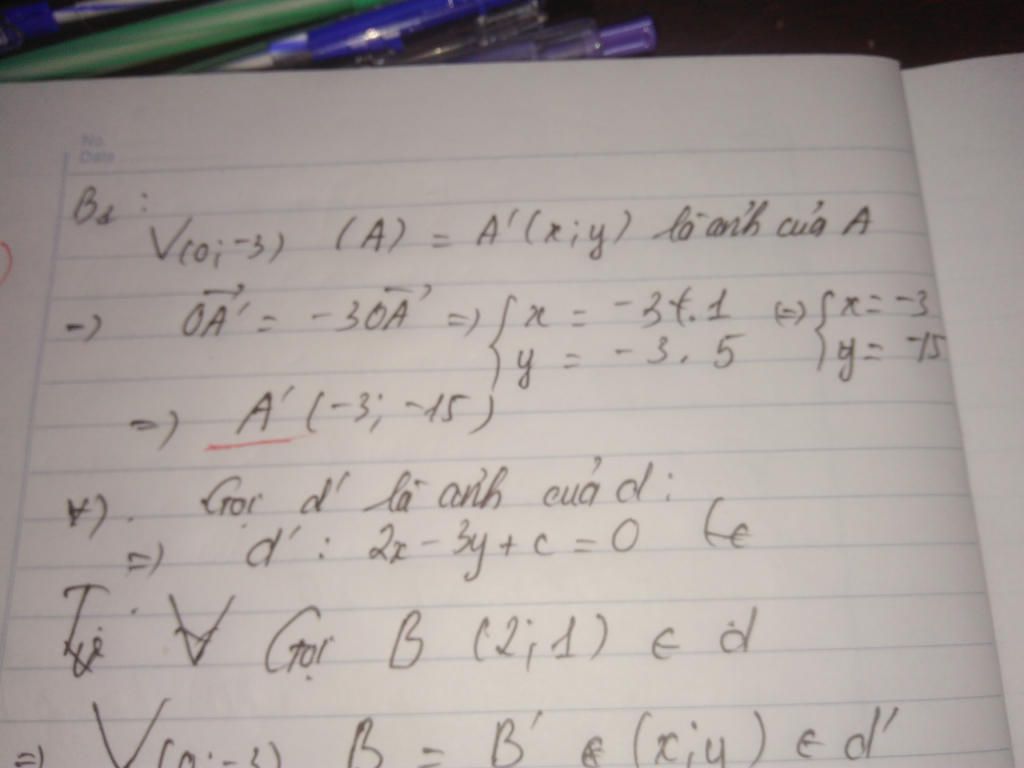 No.
Date
B1:
V(0;-3) (A) = A'(x;y) là ảnh của A
=) OA' = -3OA => { x = -3.1 (=) { x = -3
y = -3.5 y = -15
=) A' (-3; -15)
Gọi d' là ảnh của d:
=) d': 2x - 3y + c = 0
Gọi B (2;1) ∈ d
=) V(0;-3) B = B' (x;y) ∈ d'